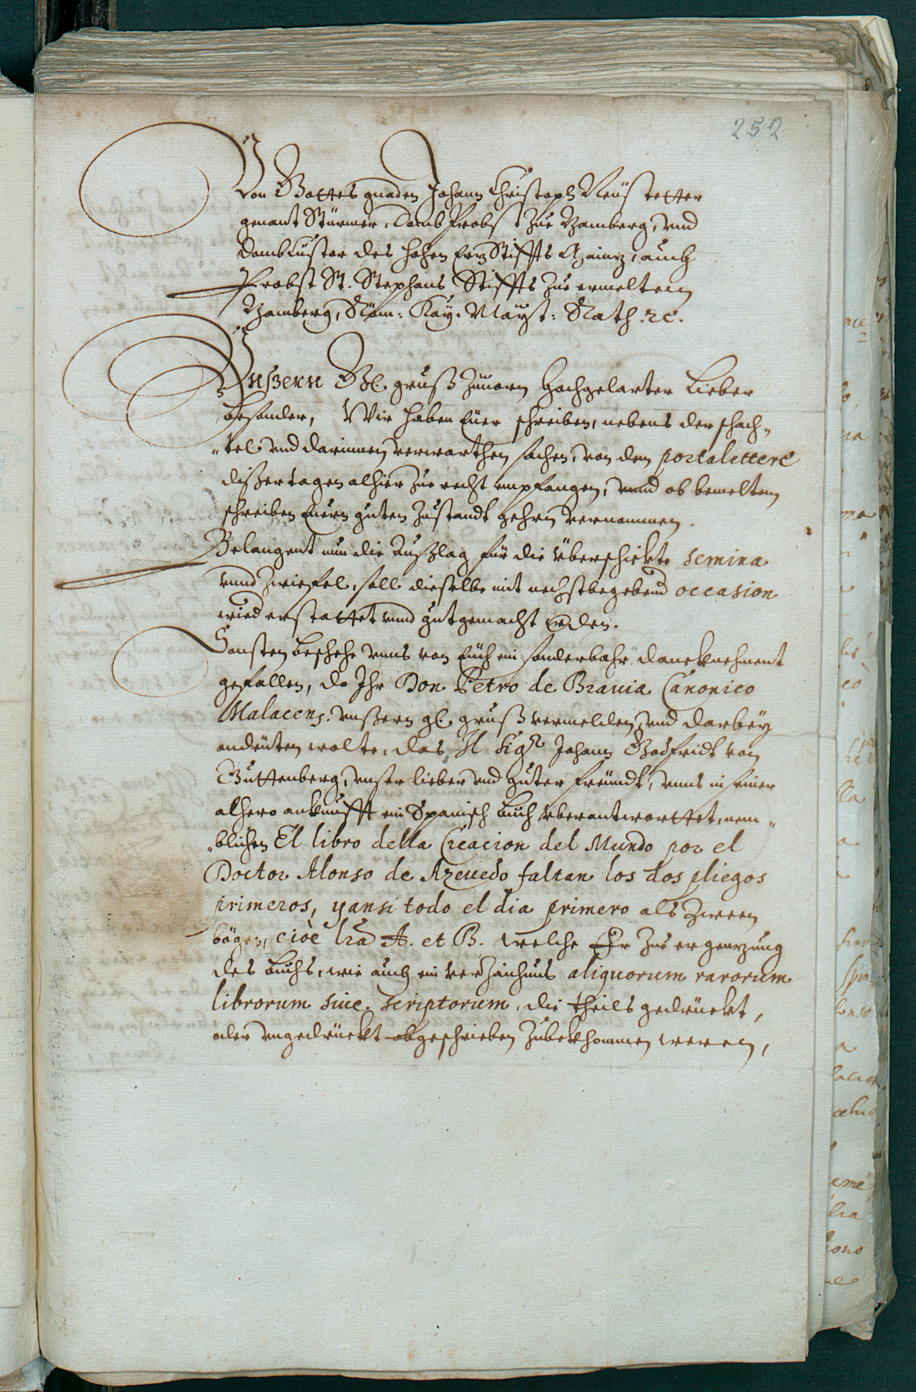 252
Von Gottes gnaden Johann Christoph Neüstetter
genant Stürmer, Domb Probst zue Bamberg, vnd
Dombkuster des hohen ErzStiffts Mainz, auch
Probst St. Stephans Stiffts zue ermeltem
Bamberg, Röm: Kay: Mayst: Rath .rc.
Vnßern Gl. gruß zuuorn Hochgelarter Lieber
besonder, Wir haben Euer schreiben, nebens der schach-
tel vnd darinnen verwarthen sachen, von dem portalettere
dißer tagen alhier zue recht empfangen, vnnd ob bemeltem
schreiben Euern guten Zustandt gehrn vernommen.
Belangent nun die Außlag für die überschickte semina
vnnd Zwiefel, soll dieselbe mit nechstbegebend occasion
wiederstattet vnnd gutgemacht werden.
Sonsten beschehe vnns von Euch ein sonderbahr dancknehment
gefallen, do Ihr Don Petro de Brauia Canonico
Malacens. vnßern gl. gruß vermelden, vnd darbey
andeuten wolte, das Il Sigr. Johann Godfridt von
Guttenberg, vnser lieber vnd guter freundt, vnns in seiner
alhero ankunfft ein Spanisch buch vberantworttet, nem-
blichen El libro della Creacion del Mundo por el
Doctor Alonso de Azeuedo faltan los dos pliegos
primeros, y ansi todo el dia primero als zween
bögen, cioè lra A. et B. welche Ihr zue ergenzung
des buchs, wie auch ein verzaichnus aliquorum rarorum
librorum siue scriptorum, die theils gedruckt,
oder vngedruckt abgeschrieben zubekhommen weren,